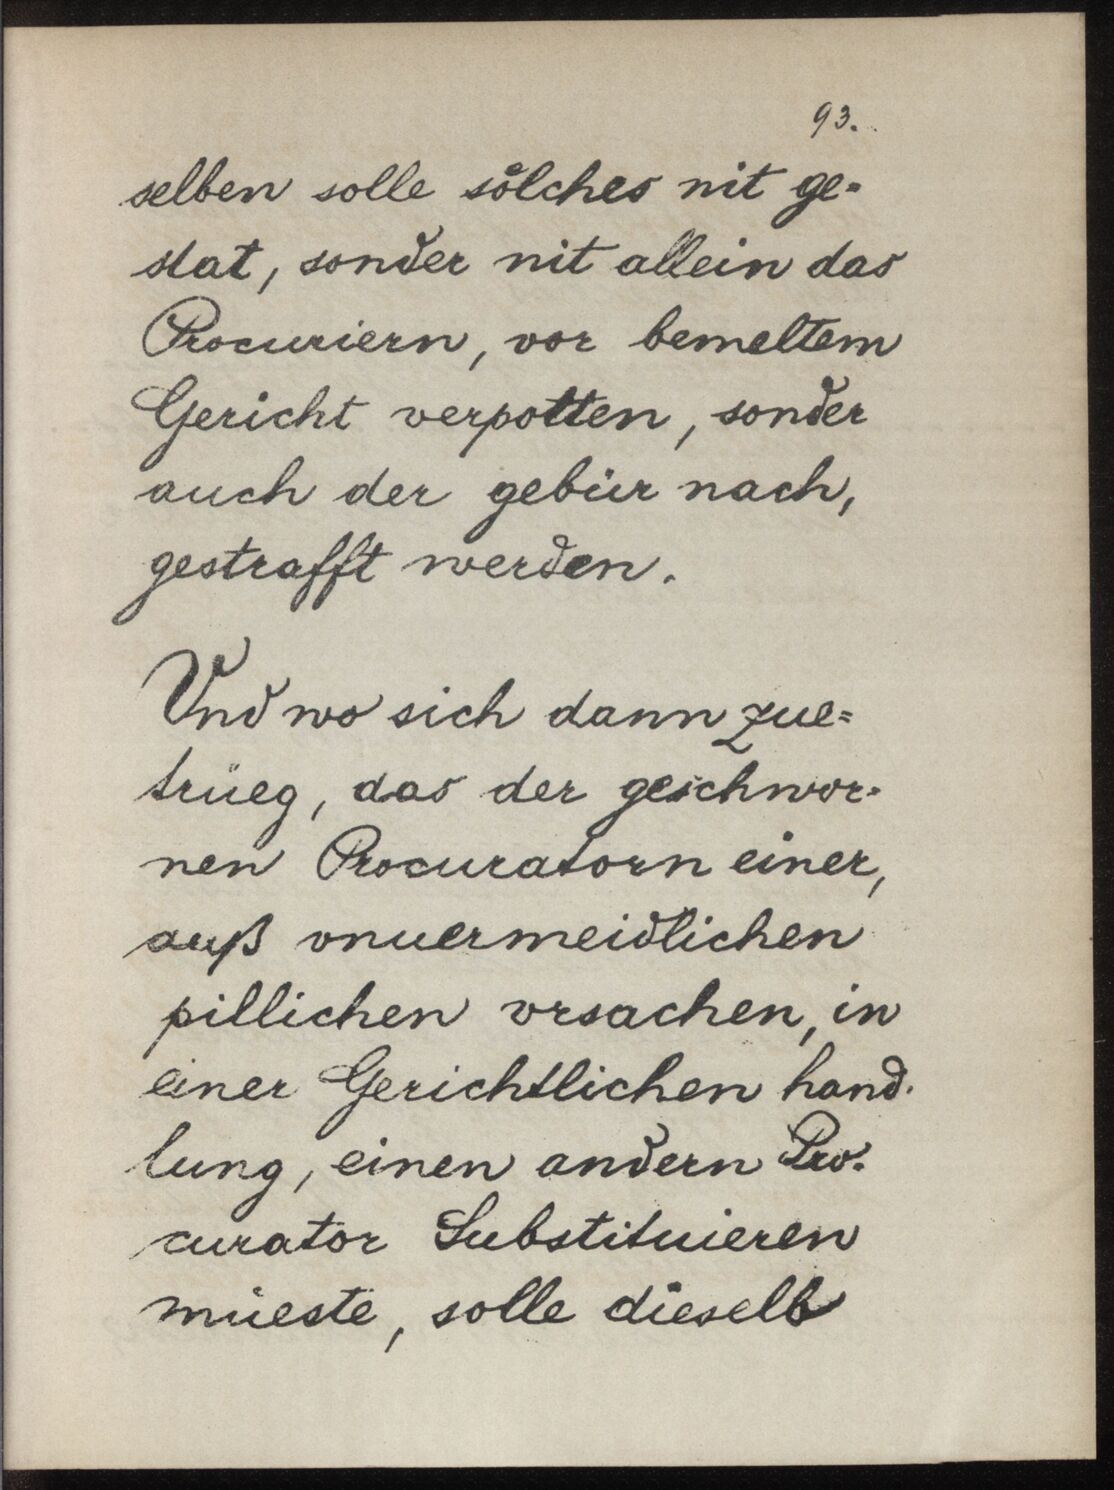 93.
selben solle sölches nit ge=
stat, sonder nit allein das
Procuriern, vor bemeltem
Gericht verpotten, sonder
auch der gebür nach,
gestrafft werden.
Vnd wo sich dann zue=
trüeg, das der geschwor=
nen Procuratorn einer,
auß vnuermeidlichen
pillichen vrsachen, in
einer Gerichtlichen hand=
lung, einen andern Pro=
curator Substituieren
müeste, solle dieselb